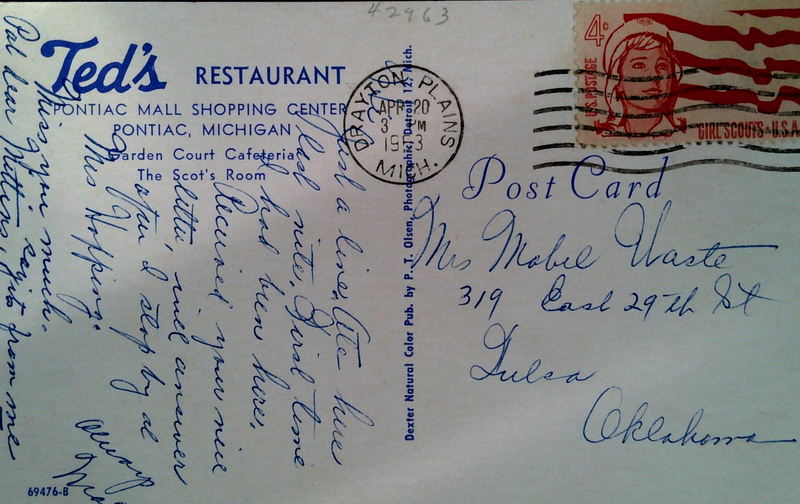 42963
Ted's RESTAURANT
PONTIAC MALL SHOPPING CENTER
PONTIAC, MICHIGAN
Garden Court Cafeteria
The Scot's Room
DRAYTON PLAINS
APR 20
3 PM
1963
MICH.
4¢
U.S. POSTAGE
GIRL SCOUTS • U.S.A
Post Card
Mrs Mabel Waste
319 East 29th St
Tulsa
Oklahoma
Dexter Natural Color Pub. by P. T. Olsen, Photographic, Detroit 12, Mich.
Just a line, Ate here
last nite, First time
I had been here,
Received your nice
letter, will answer
after I stop by at
Mrs Hoppins.
Miss you much.
Pal dear Mittens, gits from me
always
69476-B